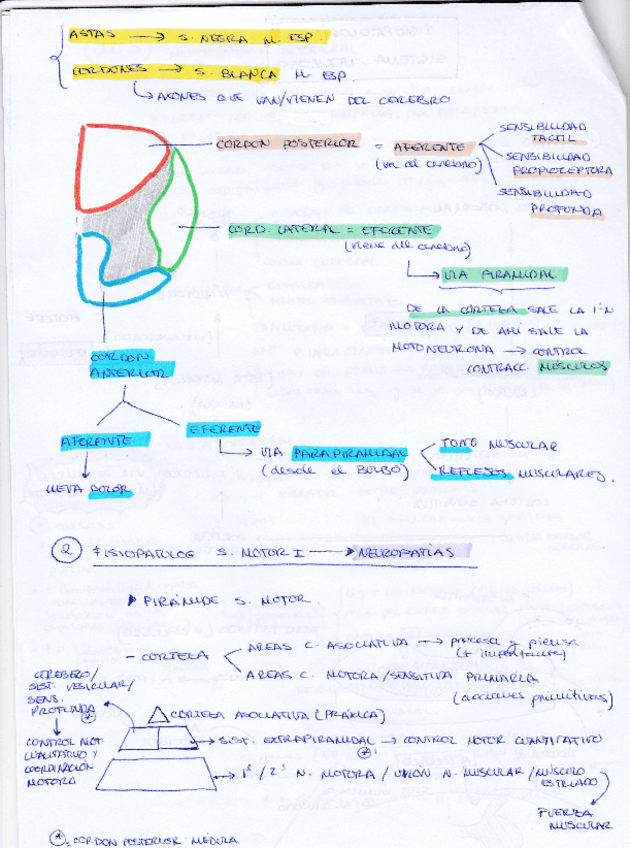 ASTAS → S. NEGRA M. ESP.
CORDONES → S. BLANCA M. ESP.
AXONES QUE VAN/VIENEN DEL CEREBRO
CORDON POSTERIOR = AFERENTE
(va al cerebro)
SENSIBILIDAD
TACTIL
SENSIBILIDAD
PROPIOCEPTORA
SENSIBILIDAD
PROFUNDA
CORD. LATERAL = EFERENTE
(viene del cerebro)
VIA PIRAMIDAL
DE LA CORTEZA SALE LA 1ªN
MOTORA Y DE AHÍ SALE LA
MOTONEURONA → CONTROL
CONTRACC MÚSCULOS
CORDON
ANTERIOR
AFERENTE
LLEVA DOLOR
EFERENTE
VIA PARAPIRAMIDAL
(desde el BULBO)
TONO MUSCULAR
REFLEJOS MUSCULARES.
2 FISIOPATOLOG S. MOTOR I → NEUROPATÍAS
PIRÁMIDE S. MOTOR.
- CORTEZA
AREAS C. ASOCIATIVA → procesa y piensa
(+ importante)
AREAS C. MOTORA/SENSITIVA PRIMARIA
(acciones primitivas)
CEREBELO/
SIST. VESICULAR/
SENS.
PROFUNDA *
CONTROL MOT.
CUALITATIVO Y
COORDINACIÓN
MOTORA
CORTEZA ASOCIATIVA (PRÁXICA)
SIST. EXTRAPIRAMIDAL → CONTROL MOTOR CUANTITATIVO
1ª/2ª N. MOTORA / UNIÓN N. MUSCULAR / MÚSCULO
ESTRIADO
FUERZA
MUSCULAR
*: CORDON POSTERIOR MÉDULA